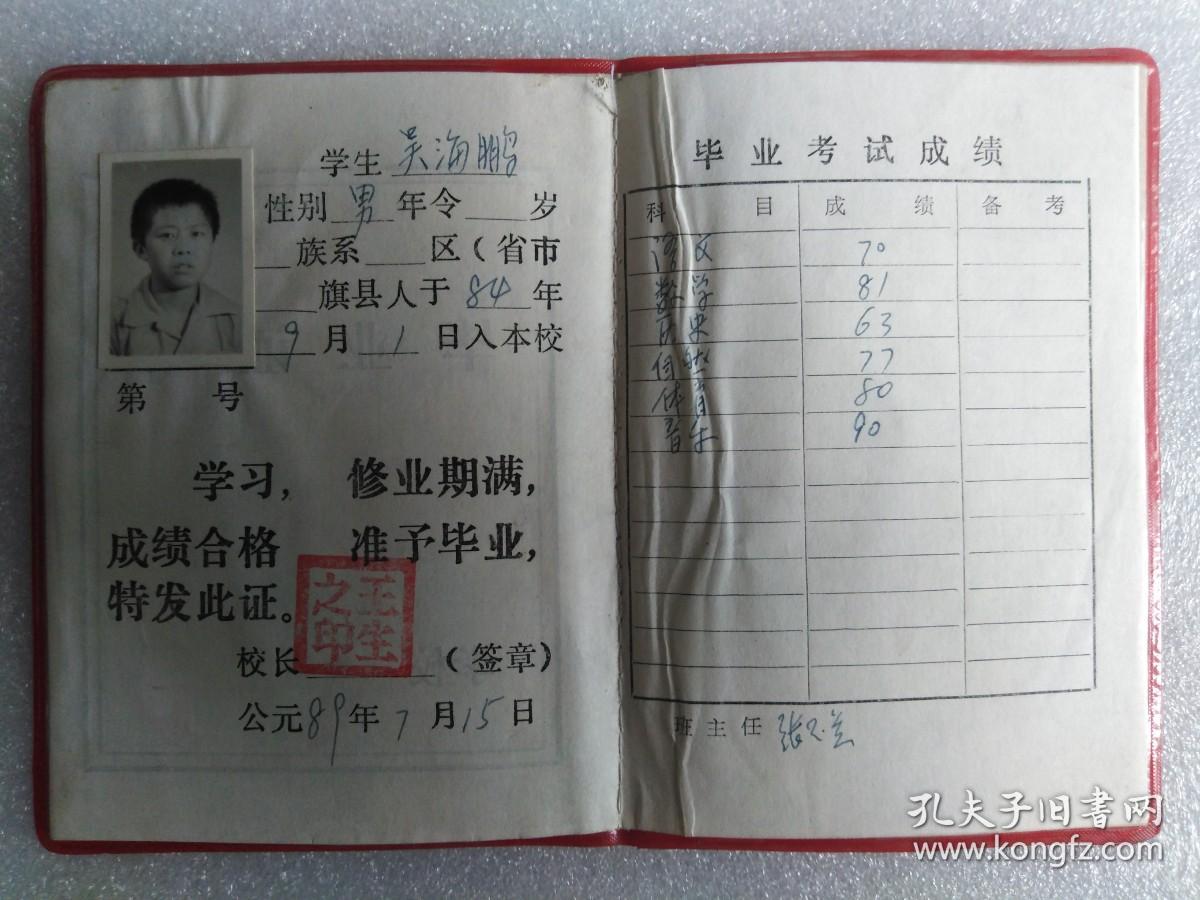 学生 吴海鹏
性别 男 年令 岁
族系 区(省市
旗县人于 84 年
9 月 1 日入本校
第 号
学习, 修业期满,
成绩合格 准予毕业,
特发此证。
校长 (签章)
王生之印
公元 89 年 7 月 15 日
毕业考试成绩
科目 成绩 备考
语文 70
数学 81
历史 63
自然 77
体育 80
音乐 90
班主任 张玉兰
孔夫子旧书网
www.kongfz.com